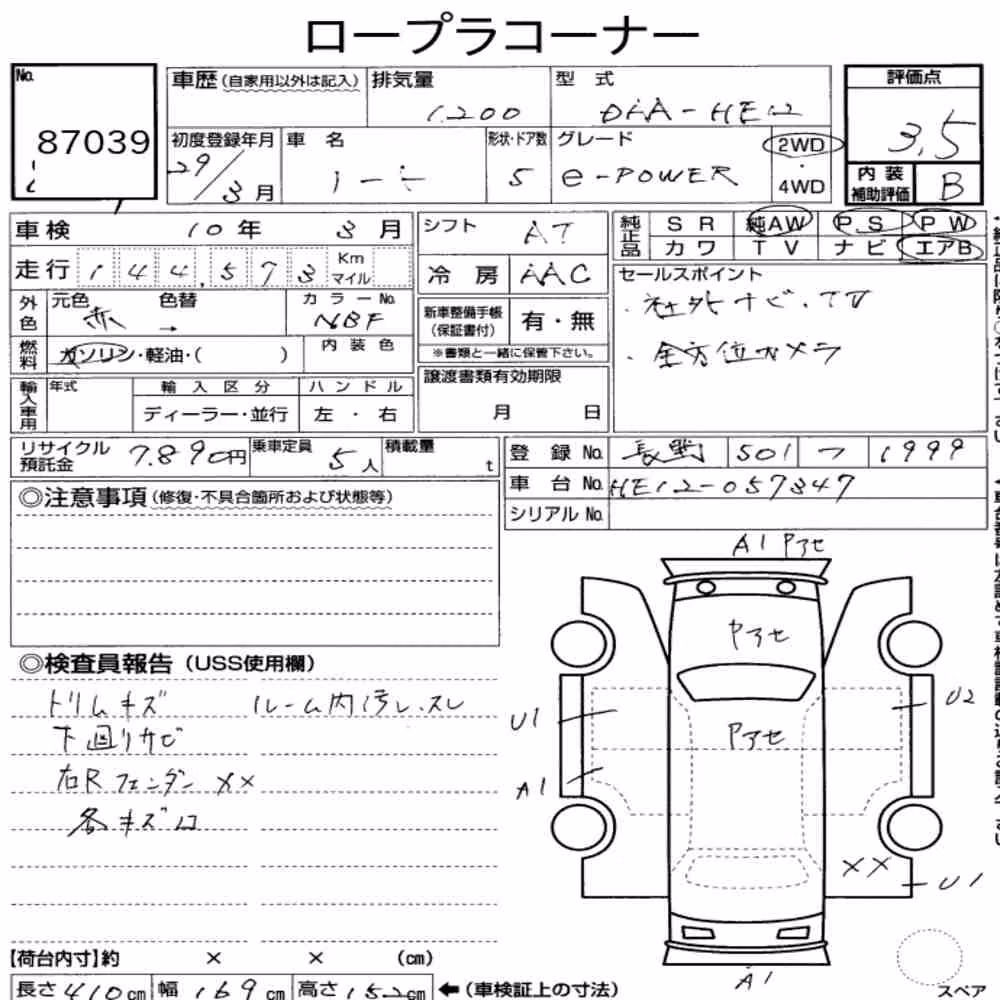 ロープラコーナー
No. 87039
車歴（自家用以外は記入） 排気量 1,200 型 式 DAA-HE12 評価点 3.5
初度登録年月 29/3月 車 名 ノート 形状・ドア数 5 グレード e-POWER 2WD・4WD 内装補助評価 B
車検 10年 3月
走行 144,573 Km マイル
外色 元色 赤 → 色替 カラーNo. NBF
燃料 ガソリン・軽油・（ ） 内装色
輸入車用 年式 輸入区分 ディーラー・並行 ハンドル 左・右
シフト AT
冷房 AAC
新車整備手帳（保証書付） 有・無
※書類と一緒に保管下さい。
譲渡書類有効期限
月 日
純正品 SR 純AW PS PW
カワ TV ナビ エアB
セールスポイント
・社外ナビ・TV
・全方位カメラ
リサイクル預託金 7,890円 乗車定員 5人 積載量 t
登録No. 長野 501 1999
車台No. HE12-057347
シリアルNo.
◎注意事項（修復・不具合箇所および状態等）
◎検査員報告（USS使用欄）
トリムキズ ルーム内汚レ、スレ
下回りサビ
右Rフェンダー××
各キズロ
A1 Pアセ
Pアセ
U1 U2
Pアセ
A1
××
U1
A1
スペア
【荷台内寸】約 × × (cm)
長さ 410cm 幅 169cm 高さ 152cm ←（車検証上の寸法）